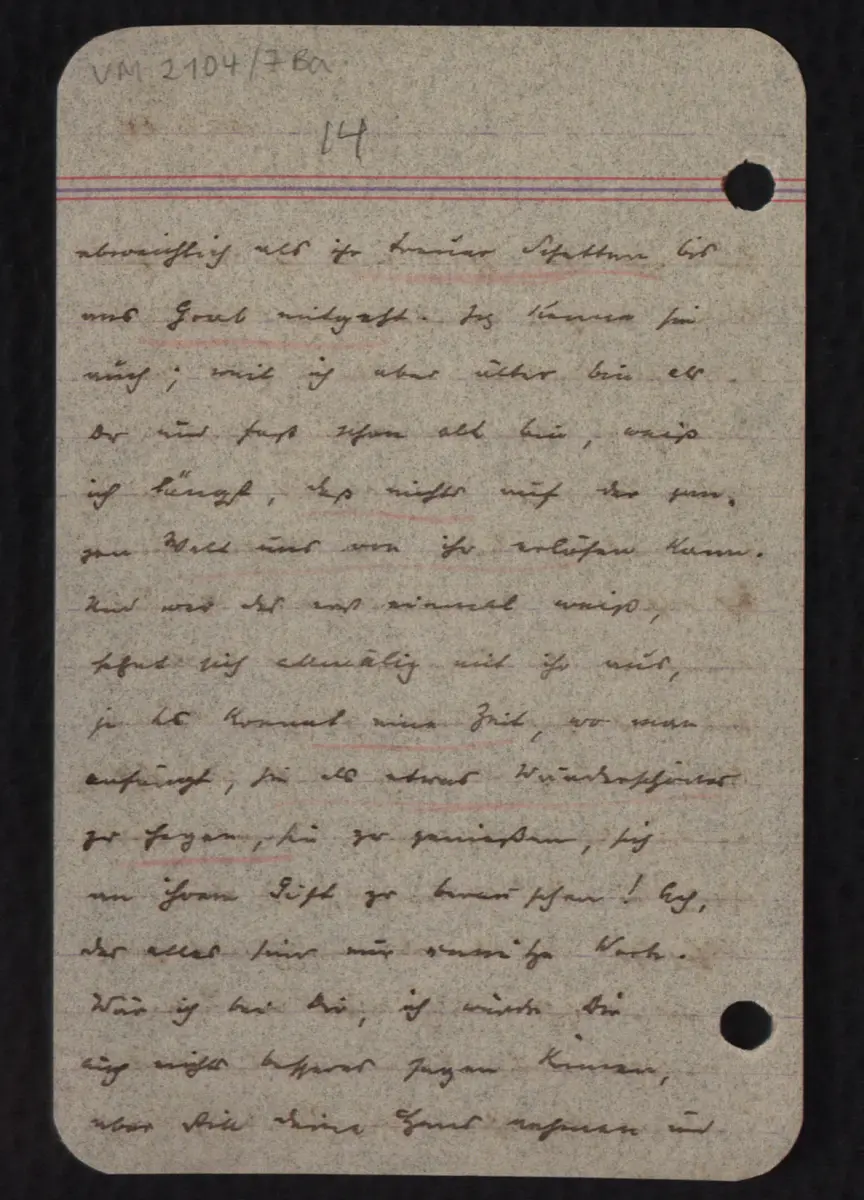 VM 2104/7Ba
14
abweichlich als ihr treuer Schatten bis
ans Grab mitgeht. Ich kenne sie
auch; weil ich aber älter bin als
Du und fast schon alt bin, weiß
ich längst, daß nichts auf der gan-
zen Welt uns von ihr erlösen kann.
Und wer das erst einmal weiß,
söhnt sich allmälig mit ihr aus,
ja es kommt eine Zeit, wo man
anfängt, sie als etwas Wunderschönes
zu hegen, sie zu genießen, sich
an ihrem Gift zu berauschen! Ach,
das alles sind nur unnütze Worte.
Wär ich bei Dir, ich würde Dir
auch nichts besseres sagen können,
aber still deine Hand nehmen und